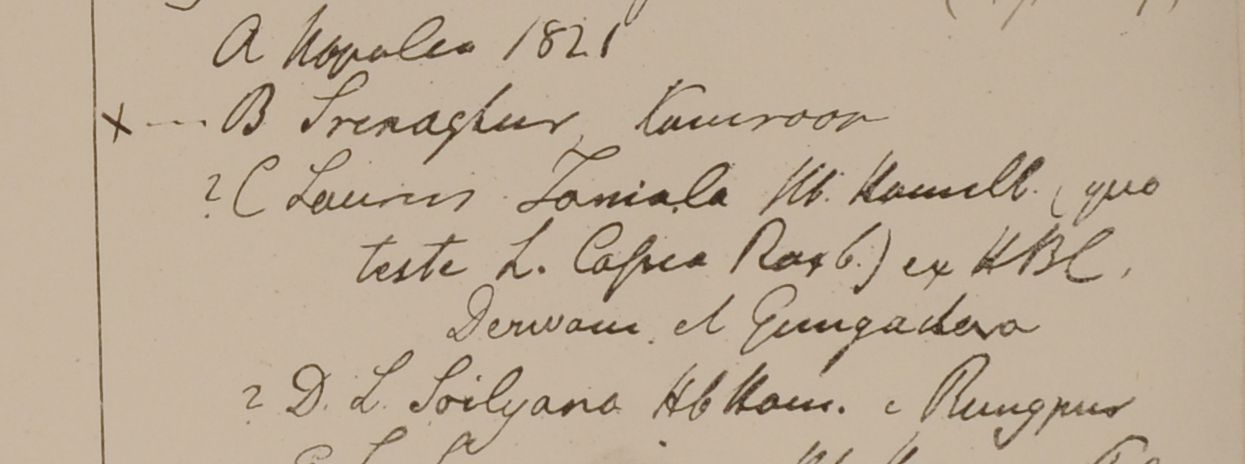 A Napalea 1821
x — B Srenaghur, Kamroop
? C Laurus Tamala Hb. Hamilt. (quo
teste L. Cassia Roxb.) ex HBC.
et Gungadora
? D. L. Soilyana Hb Ham. e Rungpur